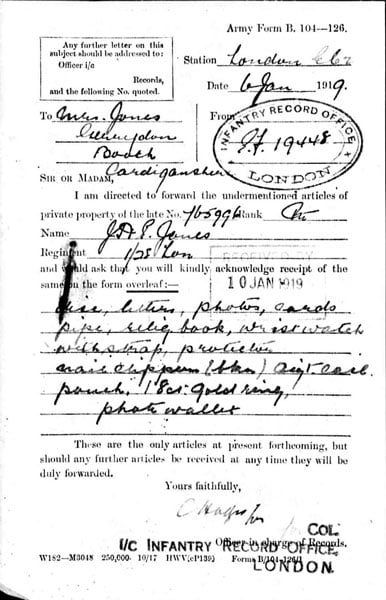 Army Form B. 104—126.
Any further letter on this
subject should be addressed to:
Officer i/c
Records,
and the following No. quoted.
Station London E.C.2
Date 6 Jan 1919.
To Mrs. Jones
From
INFANTRY RECORD OFFICE
19448
LONDON
Borth
Cardiganshire
SIR OR MADAM,
I am directed to forward the undermentioned articles of
private property of the late No. 765996 Rank Pte
Name J.H.P. Jones
Regiment 1/28 Lon
and would ask that you will kindly acknowledge receipt of the
same on the form overleaf:—
10 JAN 1919
disc, letters, photos, cards
pipe, relig book, wrist watch
with strap, protector
nail clippers (bkn) cigt case
pouch, 18ct. gold ring,
photo wallet
These are the only articles at present forthcoming, but
should any further articles be received at any time they will be
duly forwarded.
Yours faithfully,
COL.
Officer in charge of Records.
I/C INFANTRY RECORD OFFICE,
LONDON.
W182—M3048 250,000 10/17 HWV(P139) Forms B/104-126/1